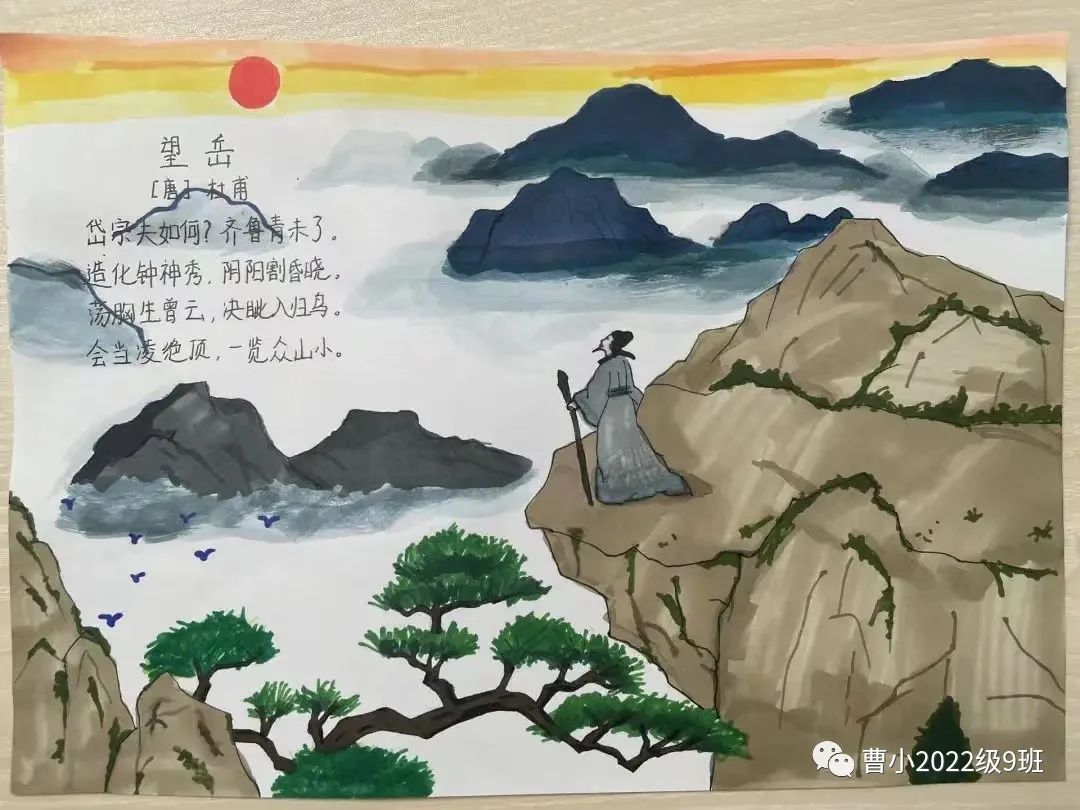 望岳
[唐] 杜甫
岱宗夫如何?齐鲁青未了。
造化钟神秀,阴阳割昏晓。
荡胸生曾云,决眦入归鸟。
会当凌绝顶,一览众山小。
曹小2022级9班